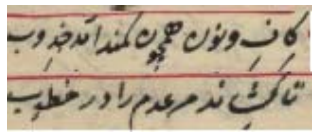 کاف و نون همچون کمند آمد جذوب
تا کشاند مر عدم را در خطوب